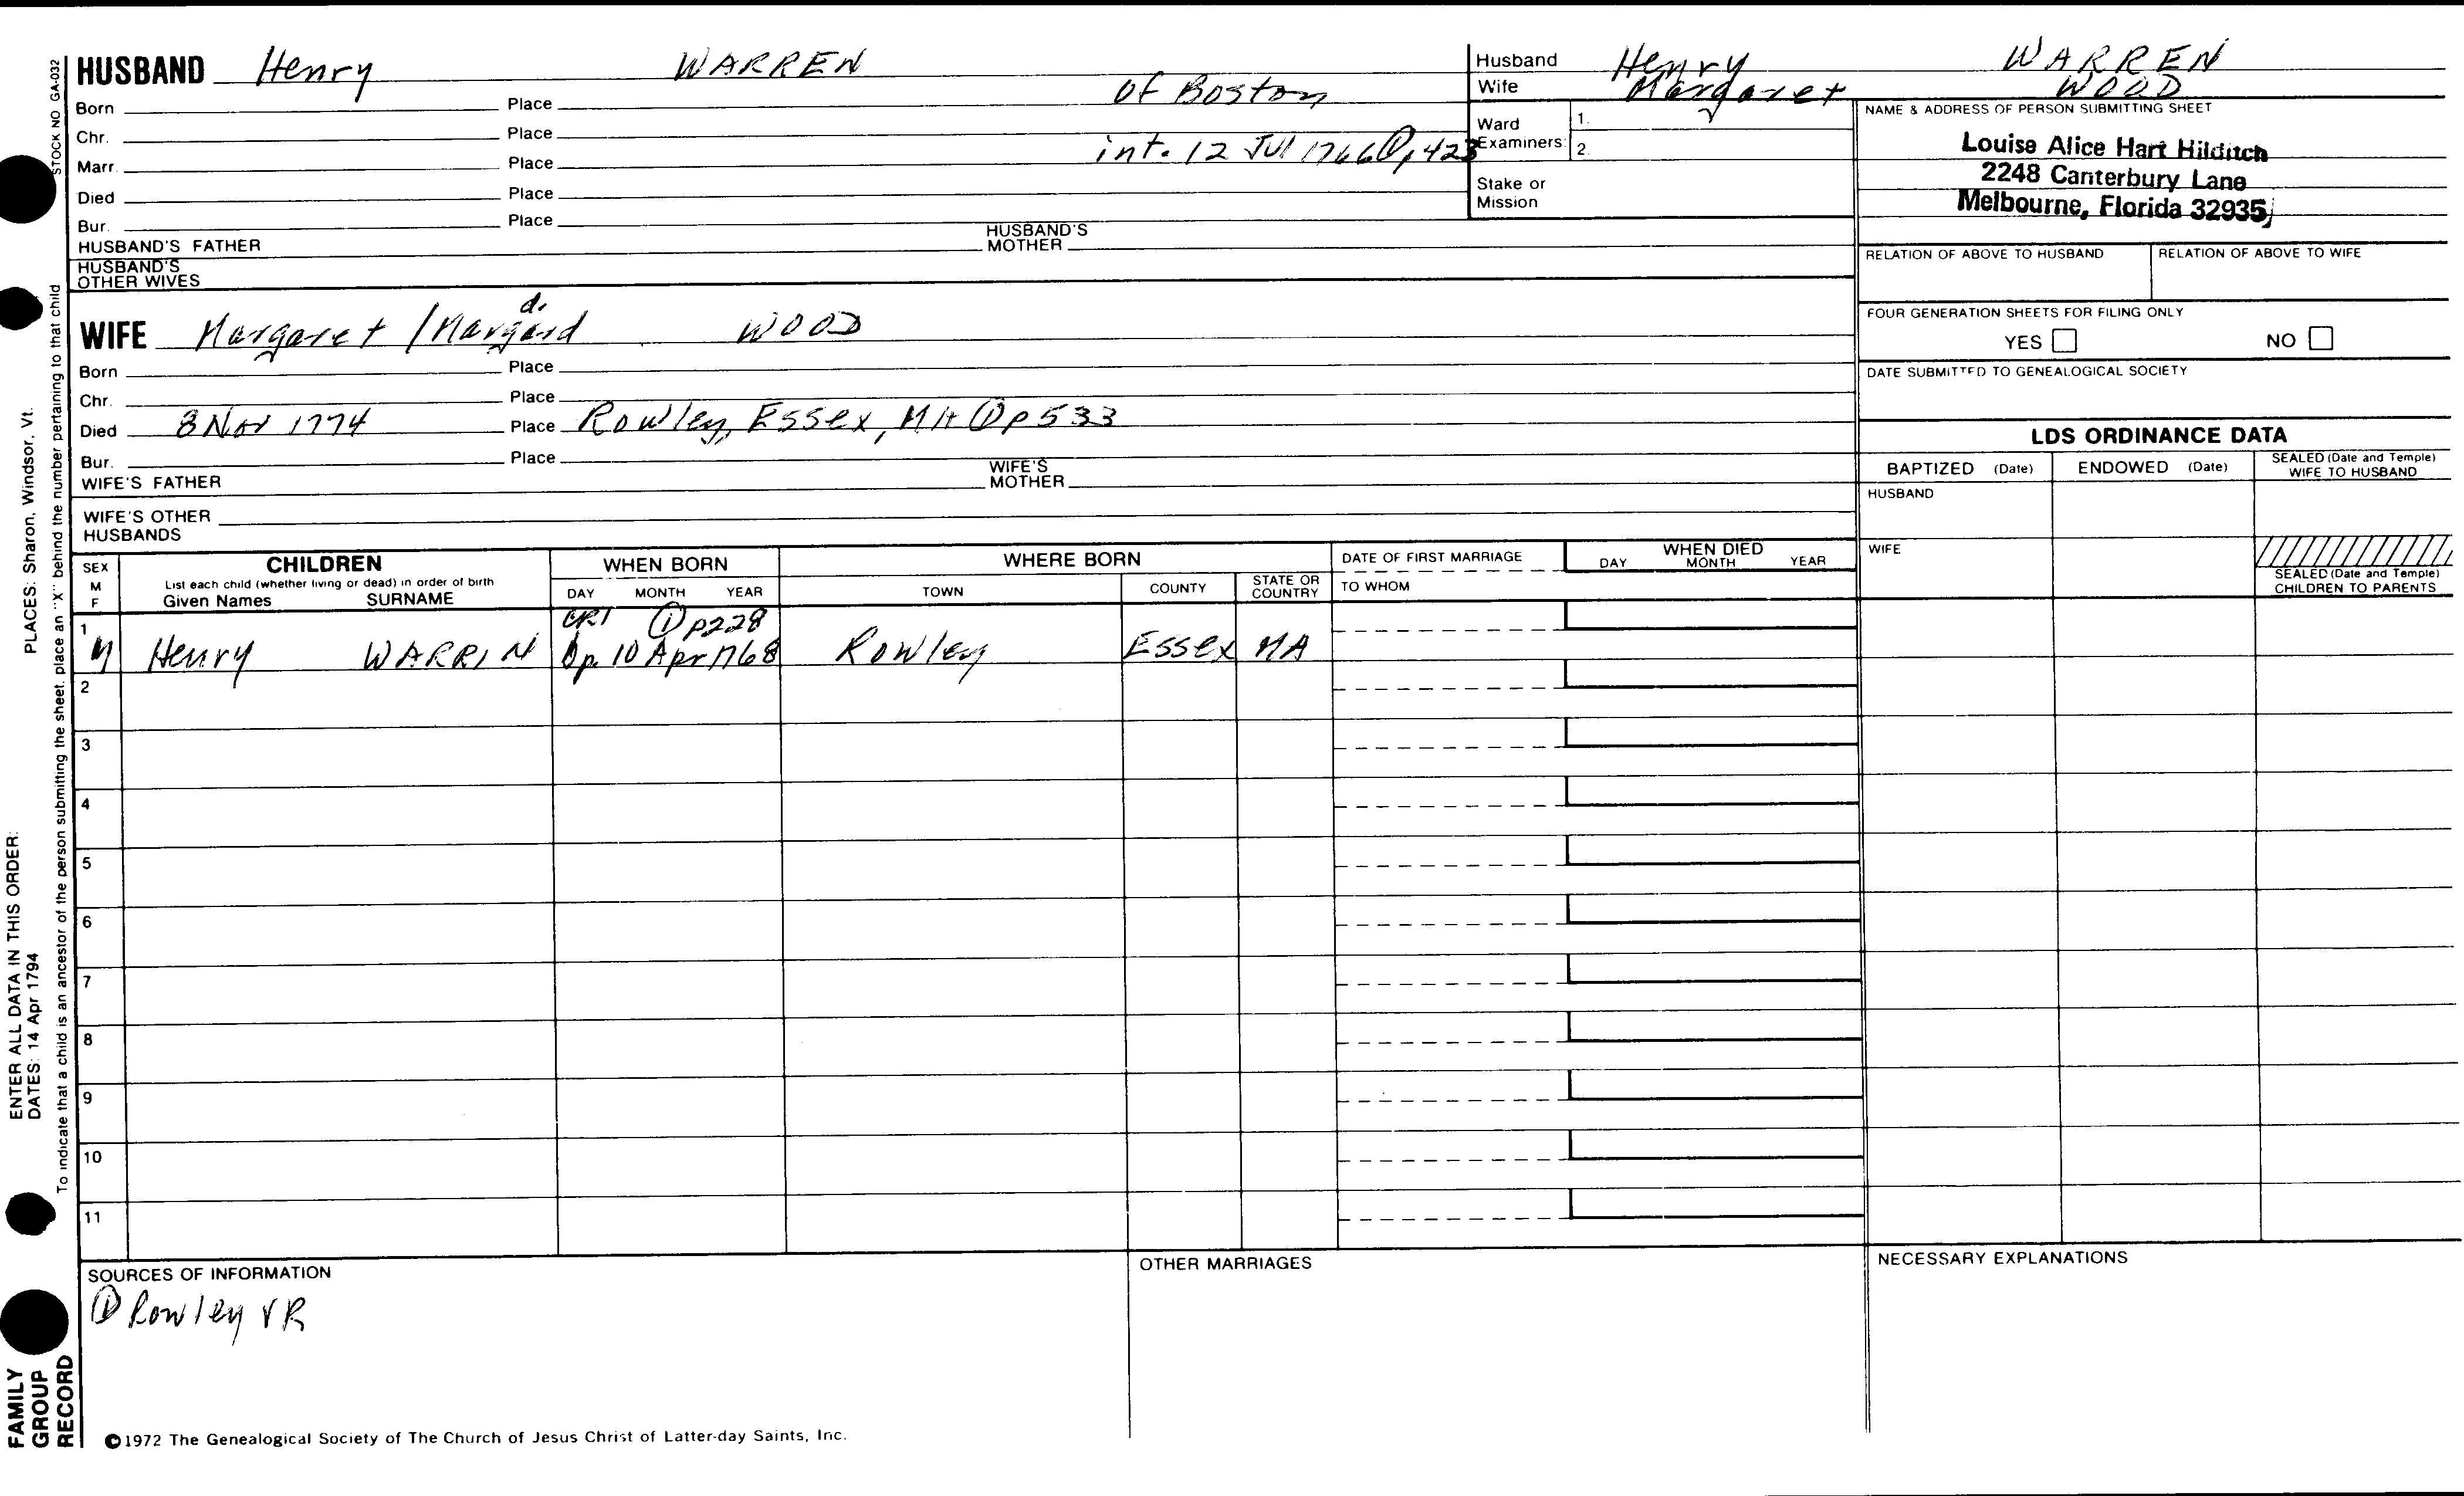 HUSBAND Henry WARREN
Born Place of Boston
Chr. Place
Marr. Place int. 12 Jul 1766 ① p 423
Died Place
Bur. Place
HUSBAND'S FATHER HUSBAND'S MOTHER
HUSBAND'S OTHER WIVES
Husband Henry WARREN
Wife Margaret WOOD
Ward Examiners: 1.
2.
Stake or Mission
NAME & ADDRESS OF PERSON SUBMITTING SHEET
Louise Alice Hart Hilditch
2248 Canterbury Lane
Melbourne, Florida 32935
RELATION OF ABOVE TO HUSBAND RELATION OF ABOVE TO WIFE
FOUR GENERATION SHEETS FOR FILING ONLY
YES NO
DATE SUBMITTED TO GENEALOGICAL SOCIETY
WIFE Margaret / Margard d. WOOD
Born Place
Chr. Place
Died 8 Nov 1774 Place Rowley, Essex, MA ① p 533
Bur. Place
WIFE'S FATHER WIFE'S MOTHER
WIFE'S OTHER HUSBANDS
LDS ORDINANCE DATA
BAPTIZED (Date) ENDOWED (Date) SEALED (Date and Temple) WIFE TO HUSBAND
HUSBAND
WIFE
SEALED (Date and Temple) CHILDREN TO PARENTS
SEX M F
CHILDREN
List each child (whether living or dead) in order of birth
Given Names SURNAME
WHEN BORN
DAY MONTH YEAR
WHERE BORN
TOWN COUNTY STATE OR COUNTRY
DATE OF FIRST MARRIAGE
TO WHOM
WHEN DIED
DAY MONTH YEAR
CR1 ① p228
1 M Henry WARRIN bp. 10 Apr 1768 Rowley Essex MA
2
3
4
5
6
7
8
9
10
11
SOURCES OF INFORMATION
① Rowley VR
OTHER MARRIAGES
NECESSARY EXPLANATIONS
©1972 The Genealogical Society of The Church of Jesus Christ of Latter-day Saints, Inc.
STOCK NO GA-032
To indicate that a child is an ancestor of the person submitting the sheet, place an "X" behind the number pertaining to that child
ENTER ALL DATA IN THIS ORDER:
DATES: 14 Apr 1794
PLACES: Sharon, Windsor, Vt.
FAMILY
GROUP
RECORD